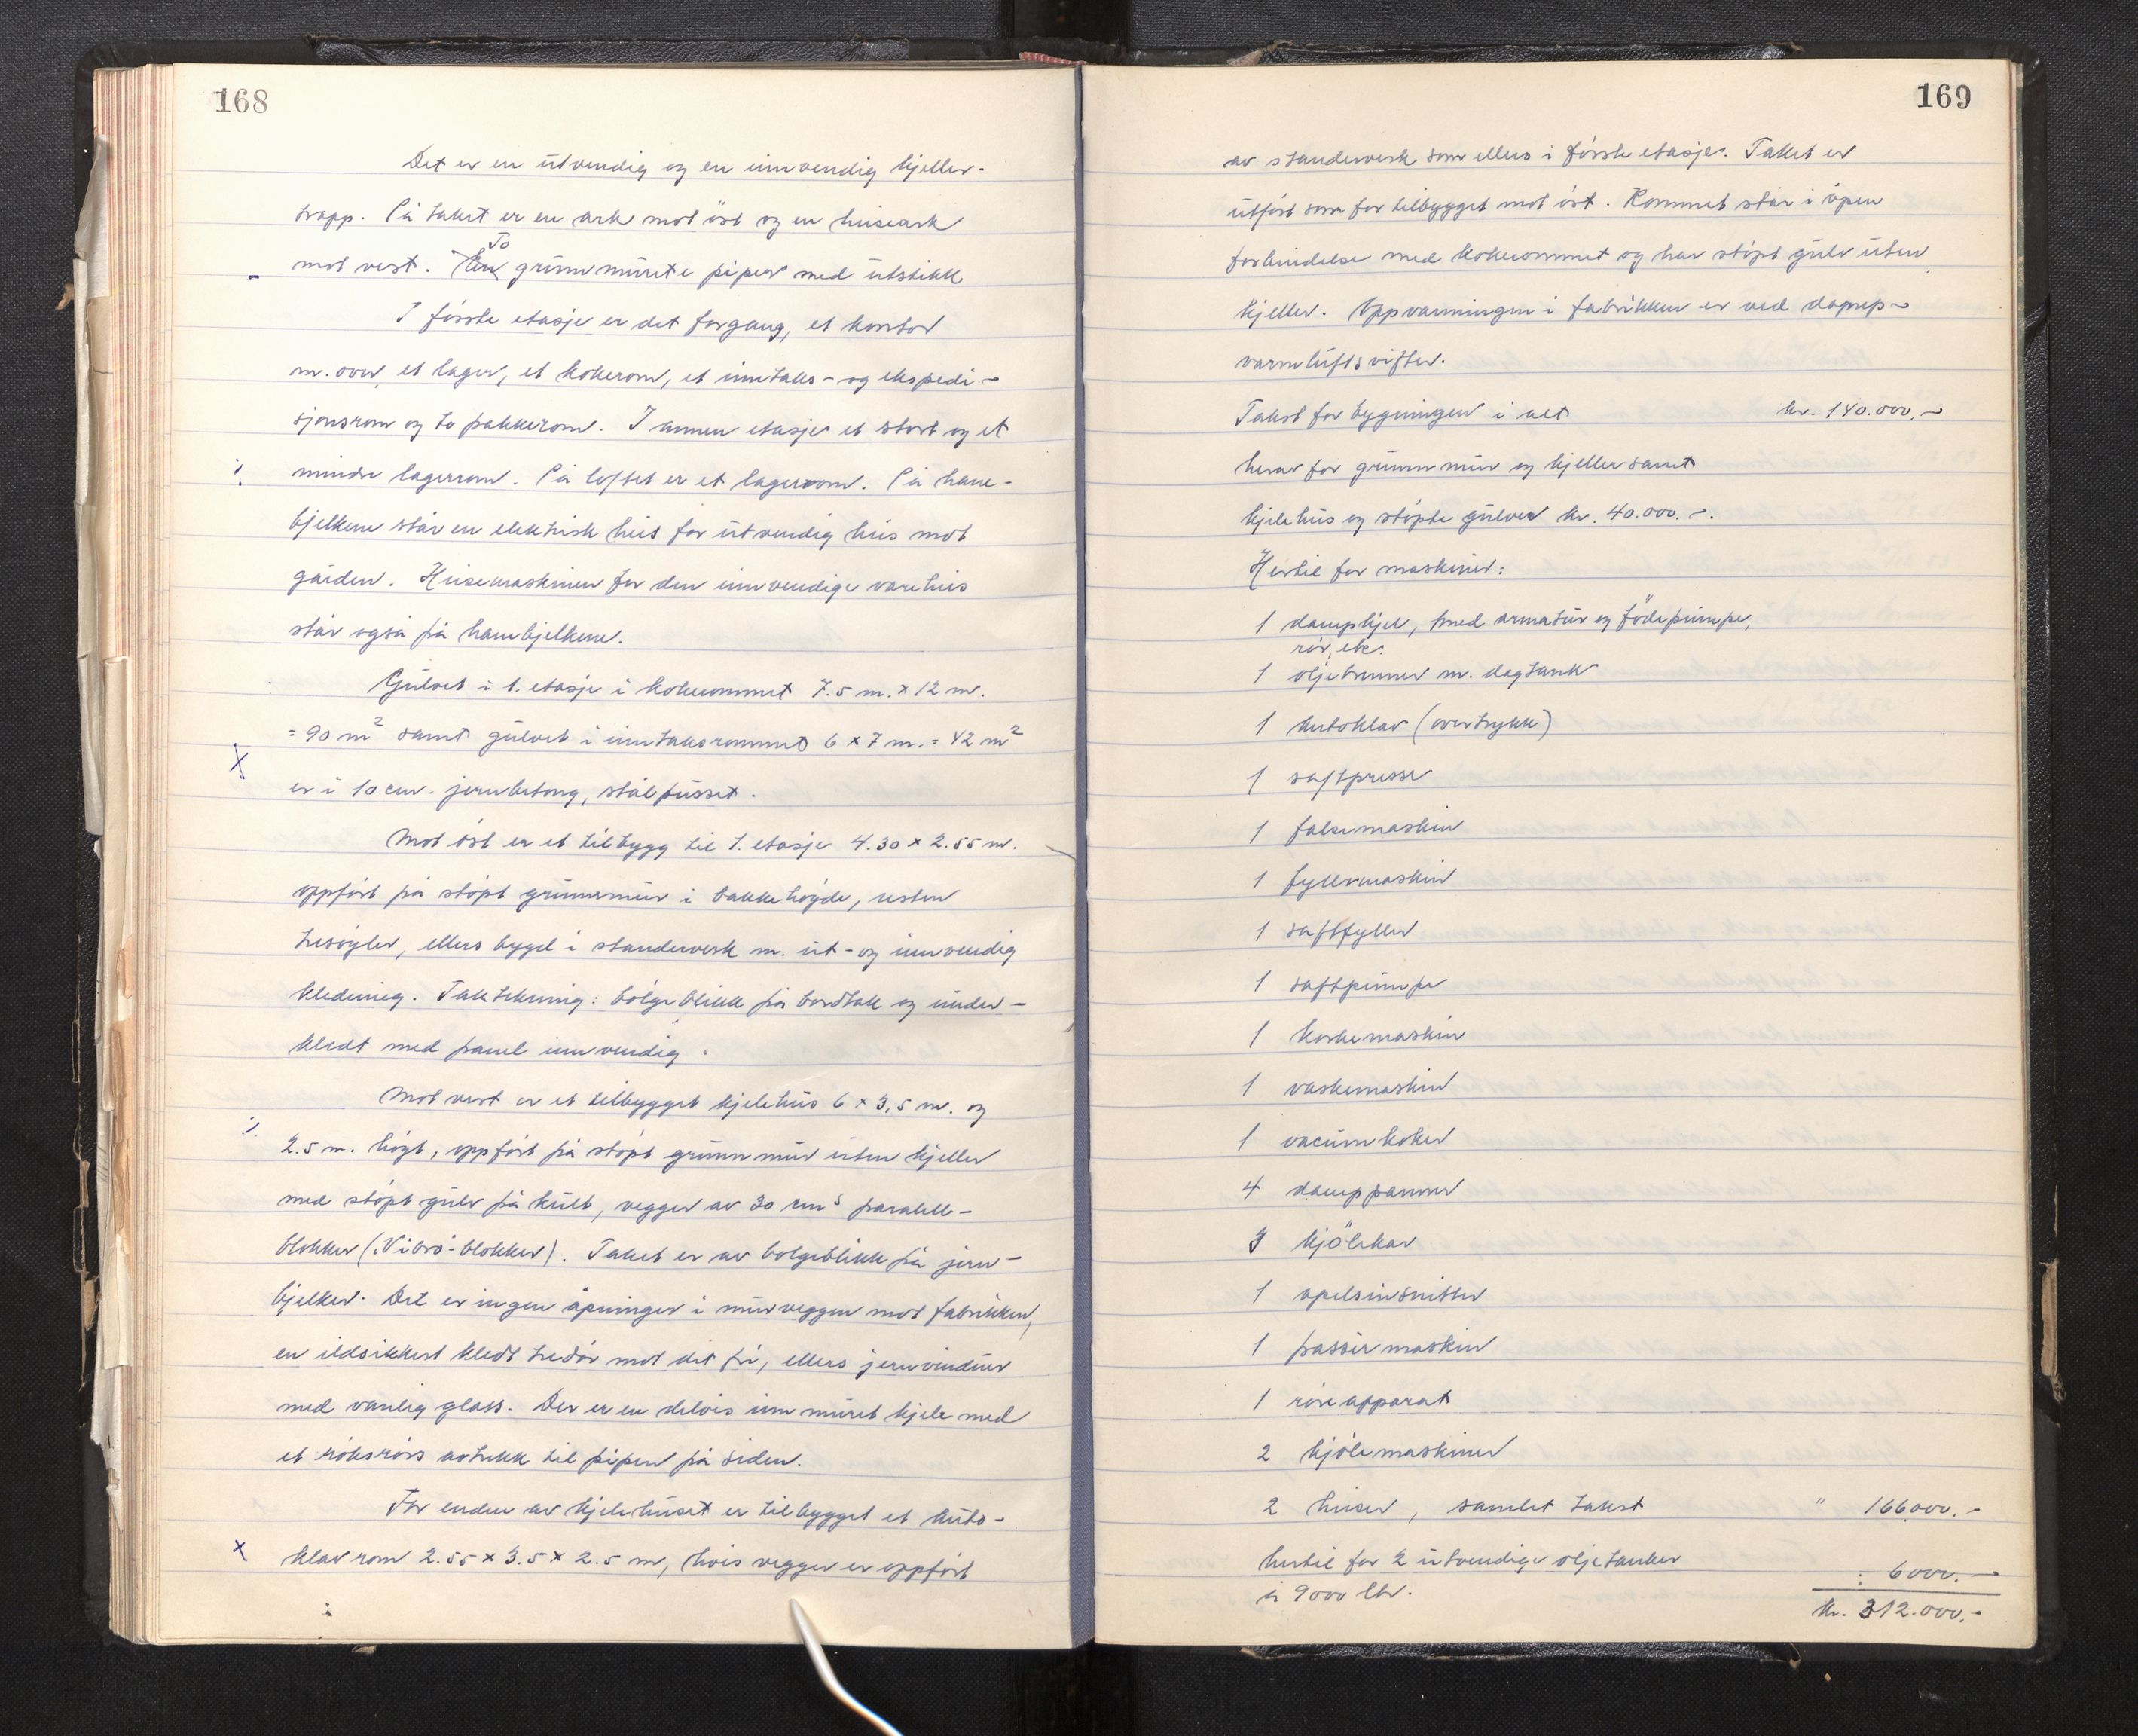 168
Det er en utvendig og en innvendig kjeller-
trapp. På taket er en ark mot öst og en heiseark
To
mot vest. En grunnmurte piper med utstikk
I første etasje er det forgang, et kontor
m. over, et lager, et kokerom, et inntaks- og ekspedi-
sjonsrom og to pakkerom. I annen etasje et stort og et
mindre lagerrom. På loftet er et lagerrom. På hane-
bjelkene står en elektrisk heis for utvendig heis mot
gården. Heisemaskinen for den innvendige vareheis
står også på hanebjelkene.
Gulvet i 1. etasje i kokerommet 7.5 m. x 12 m.
= 90 m² samt gulvet i inntaksrommet 6 x 7 m. = 42 m²
er i 10 cm. jernbetong, stålpusset.
Mot øst er et tilbygg til 1. etasje 4.30 x 2.55 m.
oppført på støpt grunnmur i bakkehøyde, resten
tresøyler, ellers bygd i standerverk m. ut- og innvendig
kledning. Taktekning: bølgeblikk på bordtak og under-
kledt med panel innvendig.
Mot vest er et tilbygget kjelehus 6 x 3,5 m. og
2.5 m. høgt, oppført på støpt grunnmur uten kjeller
med støpt gulv på kult, vegger av 30 cm's paralell-
blokker (Vibro-blokker). Taket er av bølgeblikk på jern-
bjelker. Det er ingen åpninger i murveggen mot fabrikken,
en ildsikkert kledt tredør mot det fri, ellers jernvinduer
med vanlig glass. Der er en delvis innmuret kjele med
et røksrørs avtrekk til pipen på siden.
For enden av kjelehuset er tilbygget et auto-
klavrom 2.55 x 3.5 x 2.5 m, hvis vegger er oppført
169
av standerverk som ellers i første etasje. Taket er
utført som for tilbygget mot øst. Rommet står i åpen
forbindelse med kokerommet og har støpt gulv uten
kjeller. Oppvarmingen i fabrikken er ved damp-
varmluftsvifter.
Takst for bygningen i alt kr. 140.000.-
herav for grunnmur og kjeller samt
kjelehus og støpte gulver kr. 40.000.-.
Hertil for maskiner:
1 dampkjel, med armatur og födepumpe,
rør, etc.
1 oljebrenner m. dagtank
1 autoklav (overtrykk)
1 saftpresse
1 falsemaskin
1 fyllemaskin
1 saftfyller
1 saftpumpe
1 korkemaskin
1 vaskemaskin
1 vacumkoker
4 damppanner
3 kjölekar
1 apelsinsnitter
1 passérmaskin
1 røreapparat
2 kjølemaskiner
2 heiser, samlet takst " 166.000.-
hertil for 2 utvendige oljetanker
à 9000 ltr. : 6000.-
kr. 312.000.-